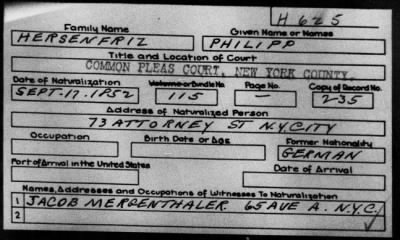 H 625
Family Name Given Name or Names
HERSENFRIZ PHILIPP
Title and Location of Court
COMMON PLEAS COURT, NEW YORK COUNTY.
Date of Naturalization Volume or Bundle No. Page No. Copy of Record No.
SEPT-17-1852 115 — 235
Address of Naturalized Person
73 ATTORNEY ST N.Y.CITY
Occupation Birth Date or Age Former Nationality
GERMAN
Port of Arrival in the United States Date of Arrival
Names, Addresses and Occupations of Witnesses To Naturalization
1 JACOB MERGENTHALER 65 AVE A. N.Y.C.
2